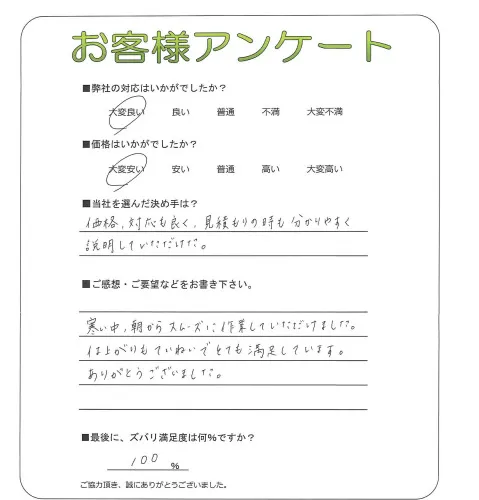 お客様アンケート
■弊社の対応はいかがでしたか？
大変良い 良い 普通 不満 大変不満
■価格はいかがでしたか？
大変安い 安い 普通 高い 大変高い
■当社を選んだ決め手は？
価格，対応も良く，見積もりの時も分かりやすく
説明していただけた。
■ご感想・ご要望などをお書き下さい。
寒い中，朝からスムーズに作業していただけました。
仕上がりもていねいでとても満足しています。
ありがとうございました。
■最後に、ズバリ満足度は何%ですか？
100 %
ご協力頂き、誠にありがとうございました。